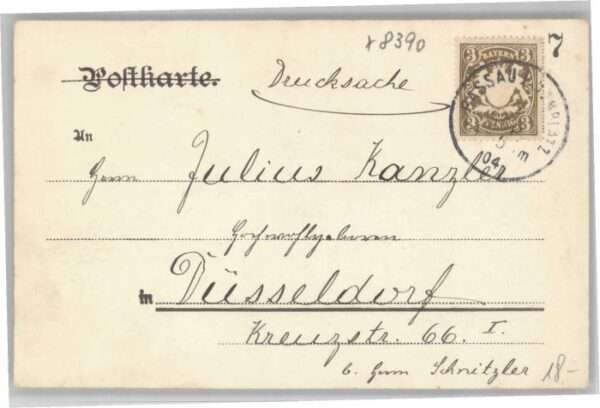 x8390
7
3 BAYERN 3
PASSAU
04
Postkarte.
Drucksache
An
Herrn Julius Kanzler
Hochwohlgeboren
in Düsseldorf
Kreuzstr. 66. I.
b. Herrn Schnitzler
18.-